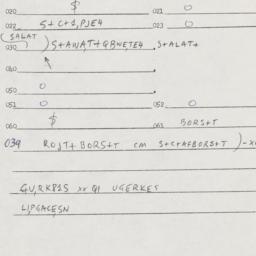 020 $ 021 0
022 S+C+1,PJE4 023 0
(SALAT
030 )S+AWAT+GBNETE4 .S+ALAT+
040 .
050 0
051 0 052 0
060 $ 061 BORS+T
039 ROJT+BORS+T CM S+C+AFBORS+T)-
GV,RKP1S xr QI UGERKES
LIPGACESN